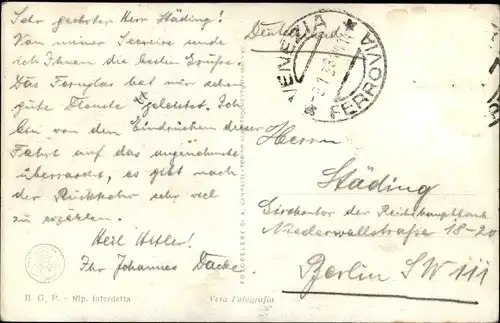 Sehr geehrter Herr Städing!
Von meiner Seereise sende
ich Ihnen die besten Grüße.
Das Fernglas hat mir sehr
gute Dienste geleistet. Ich
bin von den Eindrücken dieser
Fahrt auf das angenehmste
überrascht, es gibt nach
der Rückkehr sehr viel
zu erzählen.
Heil Hitler!
Ihr Johannes Dacke.
B. G. P. - Rip. interdetta
Vera Fotografia
Deutschland
VENEZIA
FERROVIA
Herrn
Städing
Direktor der Reichshauptbank
Niederwallstraße 18-20
Berlin SW 111